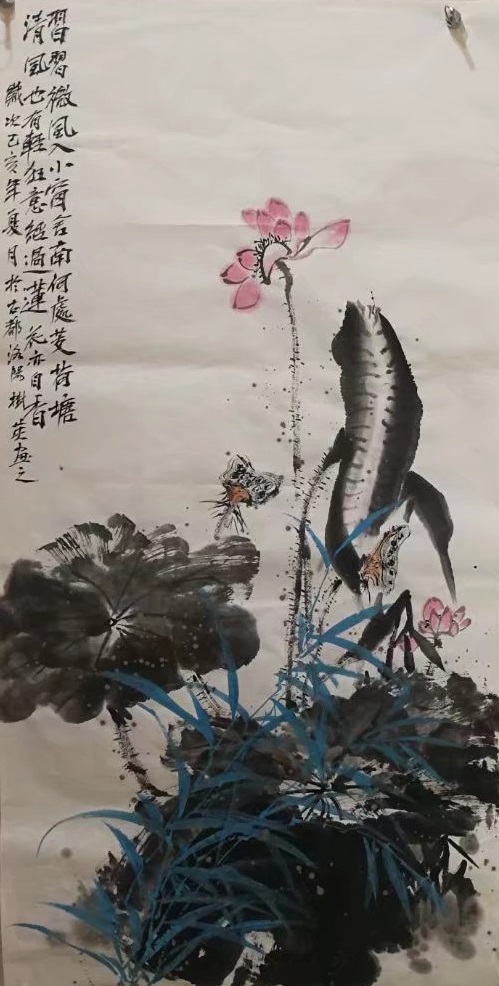 習習微風入小窗舍南何處芰荷塘
清風也有輕狂意經過蓮花亦自香
歲次己亥年夏月於古都洛陽樹英畫之